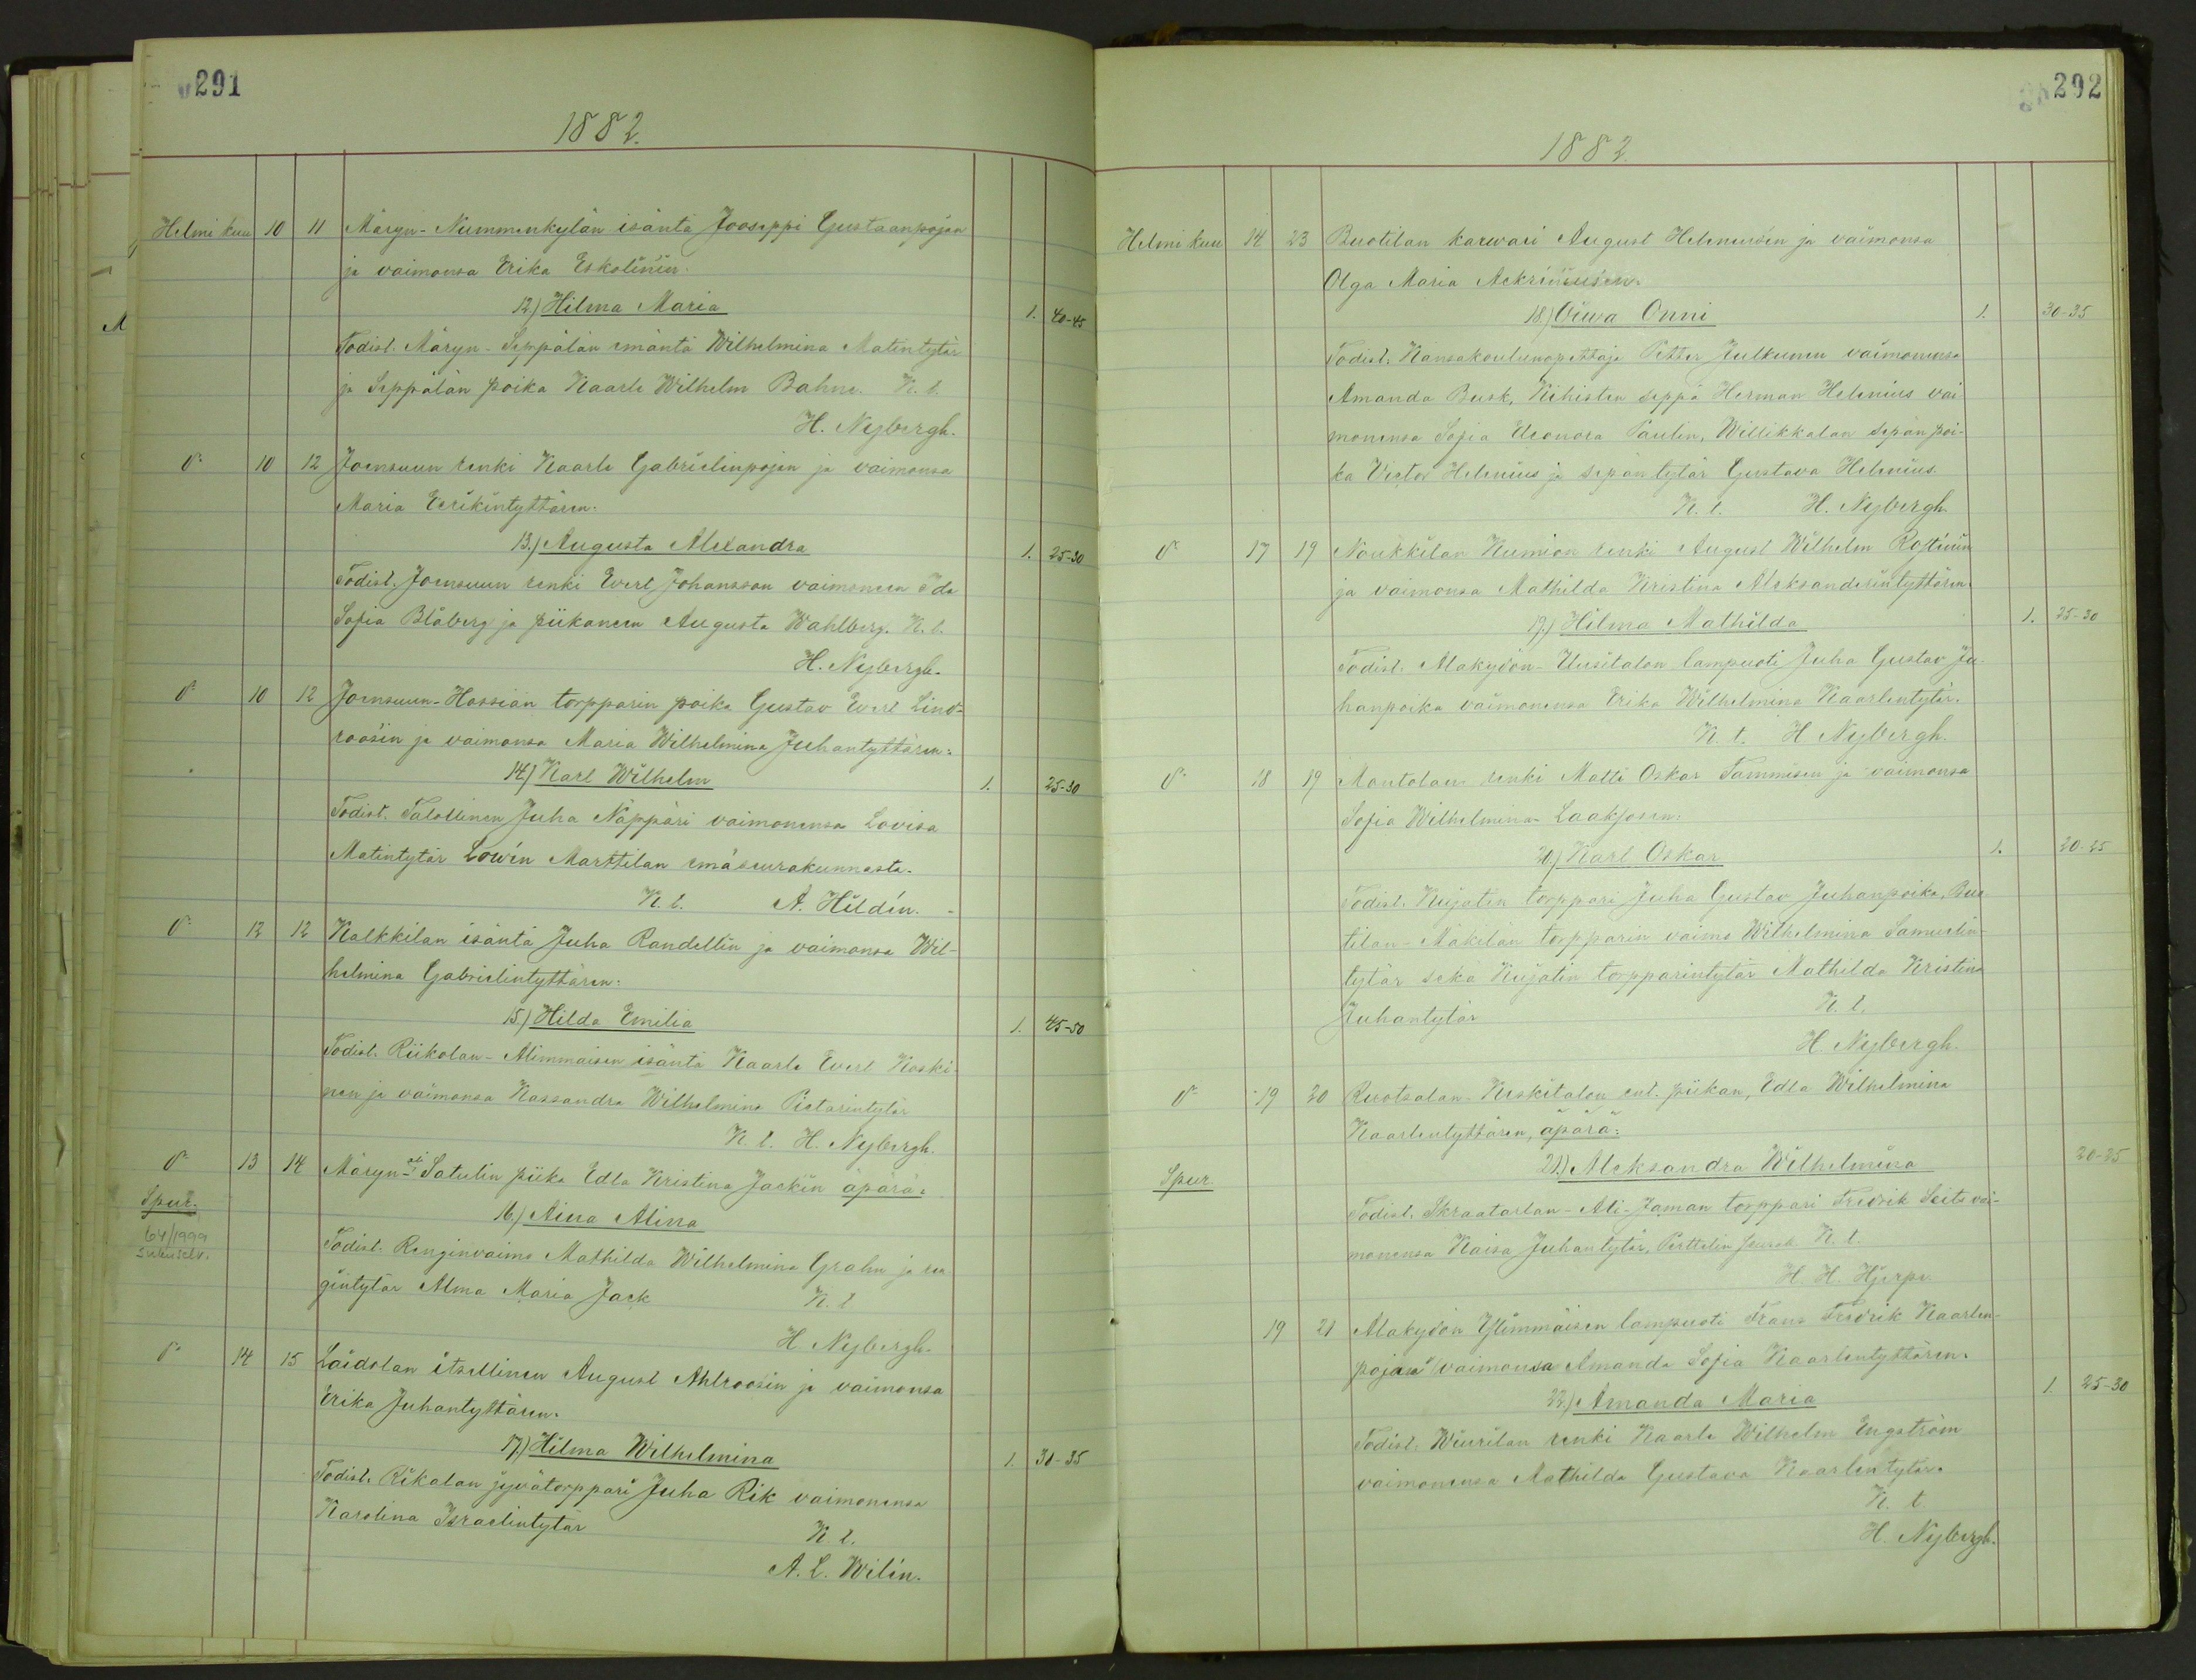 291
1882.
Helmi kuu 10 11 Märyn-Nummenkylän isäntä Jooseppi Gustaanpojan
ja vaimonsa Erika Eskolinin:
12.) Hilma Maria 1. 40-45
Todist. Märyn-Seppälän emäntä Wilhelmina Matintytär
ja Seppälän poika Kaarle Wilhelm Bahne. K. t.
H. Nybergh.
O 10 12 Joensuun renki Kaarle Gabrielinpojan ja vaimonsa
Maria Eerikintyttären:
13.) Augusta Alexandra 1. 25-30
Todist. Joensuun renki Evert Johansson vaimoneen Ida
Sofia Blåberg ja piikaneen Augusta Wahlberg. K. t.
H. Nybergh.
O 10 12 Joensuun-Hossian torpparin poika Gustav Evert Lind-
roosin ja vaimonsa Maria Wilhelmina Juhantyttären:
14.) Karl Wilhelm 1. 25-30
Todist. Talollinen Juha Näppäri vaimonensa Lovisa
Matintytär Lowin Marttilan emäseurakunnasta.
K. t. A. Hildén.
O 12 12 Kalkkilan isäntä Juha Randellin ja vaimonsa Wil-
helmina Gabrielintyttären:
15.) Hilda Emilia 1. 45-50
Todist. Riikolan-Alimmaisen isäntä Kaarle Evert Koski-
nen ja vaimonsa Kassandra Wilhelmina Pietarintytär
K. t. H. Nybergh.
O 13 14 Märyn-ali-Satulin piika Edla Kristina Jackin äpärä:
Spur.
16.) Aina Alina
64/1999
Todist. Renginvaimo Mathilda Wilhelmina Grahn ja ren-
gintytär Alma Maria Jack K. t
H. Nybergh.
O 14 15 Laidolan itsellinen August Ahlroosin ja vaimonsa
Erika Juhantyttären.
17.) Hilma Wilhelmina 1. 30-35
Todist. Rikalan jyvätorppari Juha Rik vaimonensa
Karolina Israelintytär K t.
A. L. Wilén.
292
1882.
Helmi kuu 14 23 Buotilan karwari August Heleniusen ja vaimonsa
Olga Maria
18.) Oiwa Onni 1. 30-35
Todist. Kansakoulunopettaja Petter Julkunen vaimonensa
Amanda Busk, Kihisten seppä Herman Helenius vai-
monensa Sofia Eleonora Paulin, Willikkalan sepän poi-
ka Victor Helenius ja sepän tytär Gustava Helenius.
K. t. H. Nybergh.
O 17 19 Noukkilan Kumion renki August Wilhelm
ja vaimonsa Mathilda Kristina Aleksanderintyttären:
19.) Hilma Mathilda 1. 25-30
Todist. Alakydön-Uusitalon lampuoti Juha Gustav Ju-
hanpoika vaimonensa Erika Wilhelmina Kaarlentytär.
K. t. H Nybergh.
O 18 19 Mantolan renki Matti Oskar Tammisen ja vaimonsa
Sofia Wilhelmina Laaksosen:
20.) Karl Oskar 1. 20-25
Todist. Kujatin torppari Juha Gustav Juhanpoika, Buo-
tilan-Mäkelän torpparin vaimo Wilhelmina Samuelin-
tytär sekä Kujatin torpparintytär Mathilda Kristina
Juhantytär K. t.
H. Nybergh.
O 19 20 Ruotsalan-Keskitalon ent. piikan, Edla Wilhelmina
Kaarlentyttären, äpärä:
21.) Aleksandra Wilhelmina 20-25
Spur.
Todist. Skraatarlan-Ali-Jaman torppari Fredrik Seits vai-
monensa Kaisa Juhantytär, Perttelin seurak K. t.
H. H. Hjerpe.
19 21 Alakydön Ylimmäisen lampuoti Frans Fredrik Kaarlen-
pojan vaimonsa Amanda Sofia Kaarlentyttären.
22.) Amanda Maria 1. 25-30
Todist. Wiurilan renki Kaarle Wilhelm Engström
vaimonensa Mathilda Gustava Kaarlentytär.
K. t.
H. Nybergh.